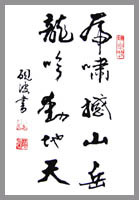 虎嘯撼山岳
龍吟動地天
硯波書